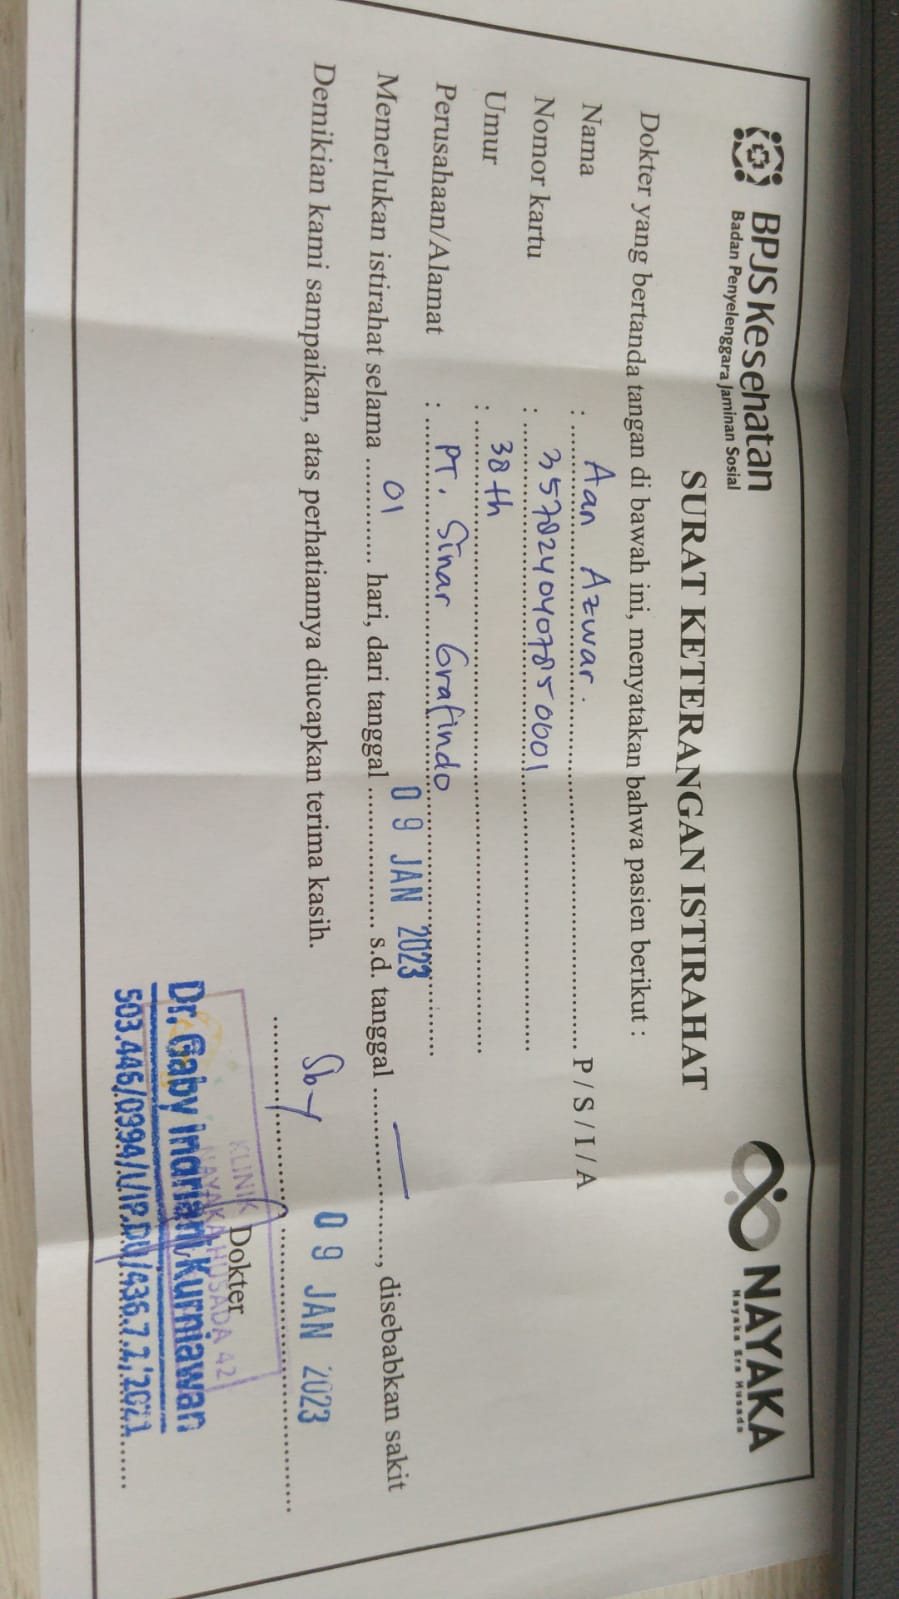 BPJS Kesehatan
Badan Penyelenggara Jaminan Sosial
NAYAKA
Nayaka Era Husada
SURAT KETERANGAN ISTIRAHAT
Dokter yang bertanda tangan di bawah ini, menyatakan bahwa pasien berikut :
Nama : Aan Azwar. P / S / I / A
Nomor kartu : 3578240407850001
Umur : 38 th
Perusahaan/Alamat : PT. Sinar Grafindo
Memerlukan istirahat selama 01 hari, dari tanggal 09 JAN 2023 s.d. tanggal —, disebabkan sakit
Demikian kami sampaikan, atas perhatiannya diucapkan terima kasih.
Sby 09 JAN 2023
Dokter
KLINIK
NAYAKA HUSADA 42
Dr. Gaby Indriani Kurniawan
503.446/0994/I/IP.DU/436.7.2/2021